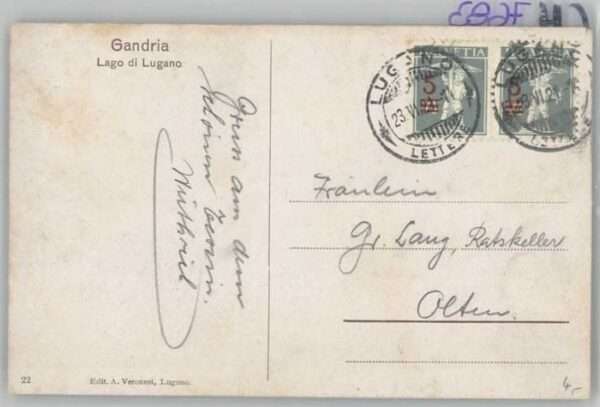 Gandria
Lago di Lugano
Gruss aus dem
schönen Tessin.
HELVETIA
5
5
LUGANO
23.VI.21
LETTERE
LUGANO
VI.21
LETTERE
Fräulein
Gr. Lang, Ratskeller
Olten.
22
Edit. A. Veronesi, Lugano.
4.-